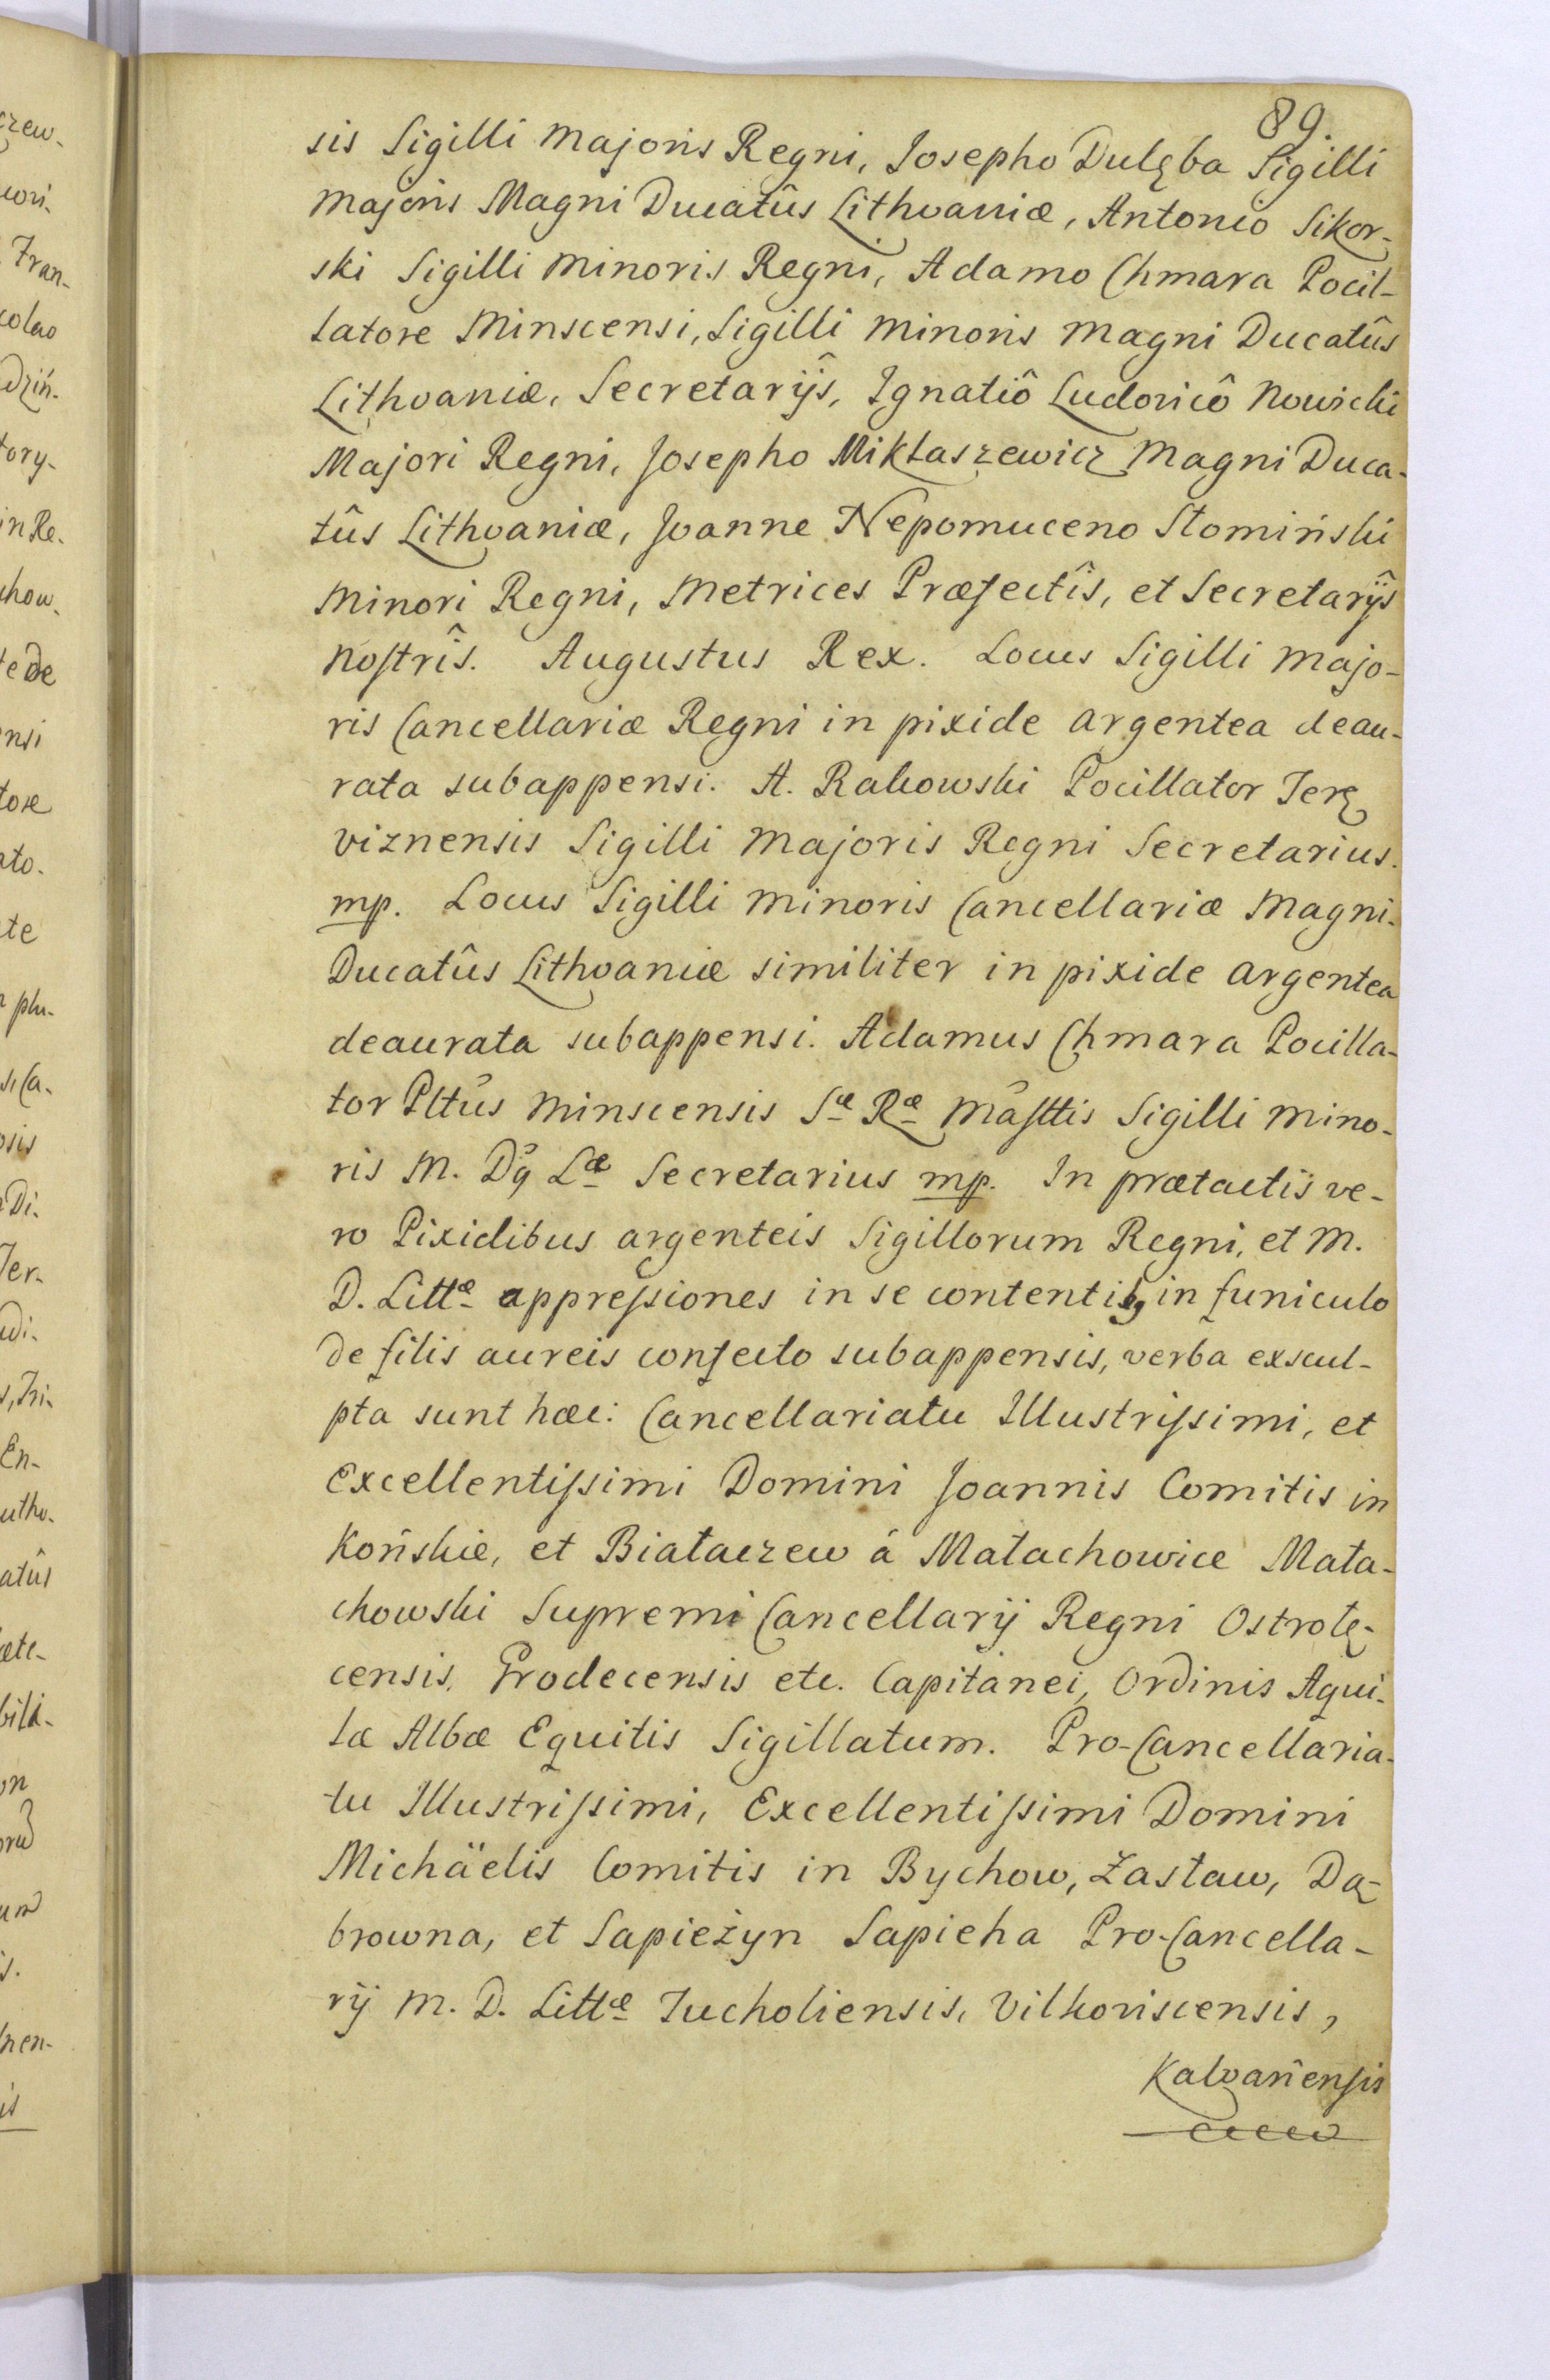 89.
sis Sigilli Majoris Regni, Josepho Dulęba Sigilli
Majoris Magni Ducatûs Lithvaniæ, Antonio Sikor-
ski Sigilli Minoris Regni, Adamo Chmara Pocil-
latore Minscensi, Sigilli Minoris Magni Ducatûs
Lithvaniæ, Secretarijs, Ignatiô Ludovicô Nowicki
Majori Regni, Josepho Mikłaszewicz Magni Duca-
tûs Lithvaniæ, Joanne Nepomuceno Słomiński
Minori Regni, Metrices Præfectîs, et Secretarijs
nostrîs. Augustus Rex. Locus Sigilli Majo-
ris Cancellariæ Regni in pixide argentea deau-
rata subappensi. A. Rakowski Pocillator Terę
viznensis Sigilli Majoris Regni Secretarius.
mp. Locus Sigilli Minoris Cancellariæ Magni
Ducatûs Lithvaniæ similiter in pixide argentea
deaurata subappensi. Adamus Chmara Pocilla-
tor Plttûs Minscensis Sæ Ræ Masttis Sigilli Mino-
ris M. Dg Læ Secretarius mp. In prætactis ve-
ro Pixidibus argenteis Sigillorum Regni, et M.
D. Littæ appressiones in se contentis, in funiculo
de filis aureis confecto subappensis, verba exscul-
pta sunt hæc: Cancellariatu Illustrissimi, et
Excellentissimi Domini Joannis Comitis in
Końskie, et Białaczew á Małachowice Mała-
chowski Supremi Cancellarij Regni Ostrołę-
censis, Grodecensis etc. Capitanei, Ordinis Aqui-
læ Albæ Equitis Sigillatum. Pro-Cancellaria-
tu Illustrissimi, Excellentissimi Domini
Michäelis Comitis in Bychow, Zasław, Dą-
browna, et Sapieżyn Sapieha Pro-Cancella-
rij M. D. Littæ Tucholiensis, Vilkoviscensis,
Kalvariensis
crew-
wri-
Fran-
colao
dziń-
tory-
in Re-
chow-
te de
ensi
tore
ato-
te
plu-
si, Ca-
osis
Di-
Ter-
udi-
s, Tri-
En-
utho-
atûs
ete-
bili-
on
um
s.
nen-
is